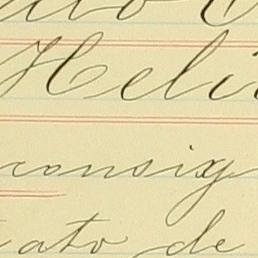 Heli
consig
ato de